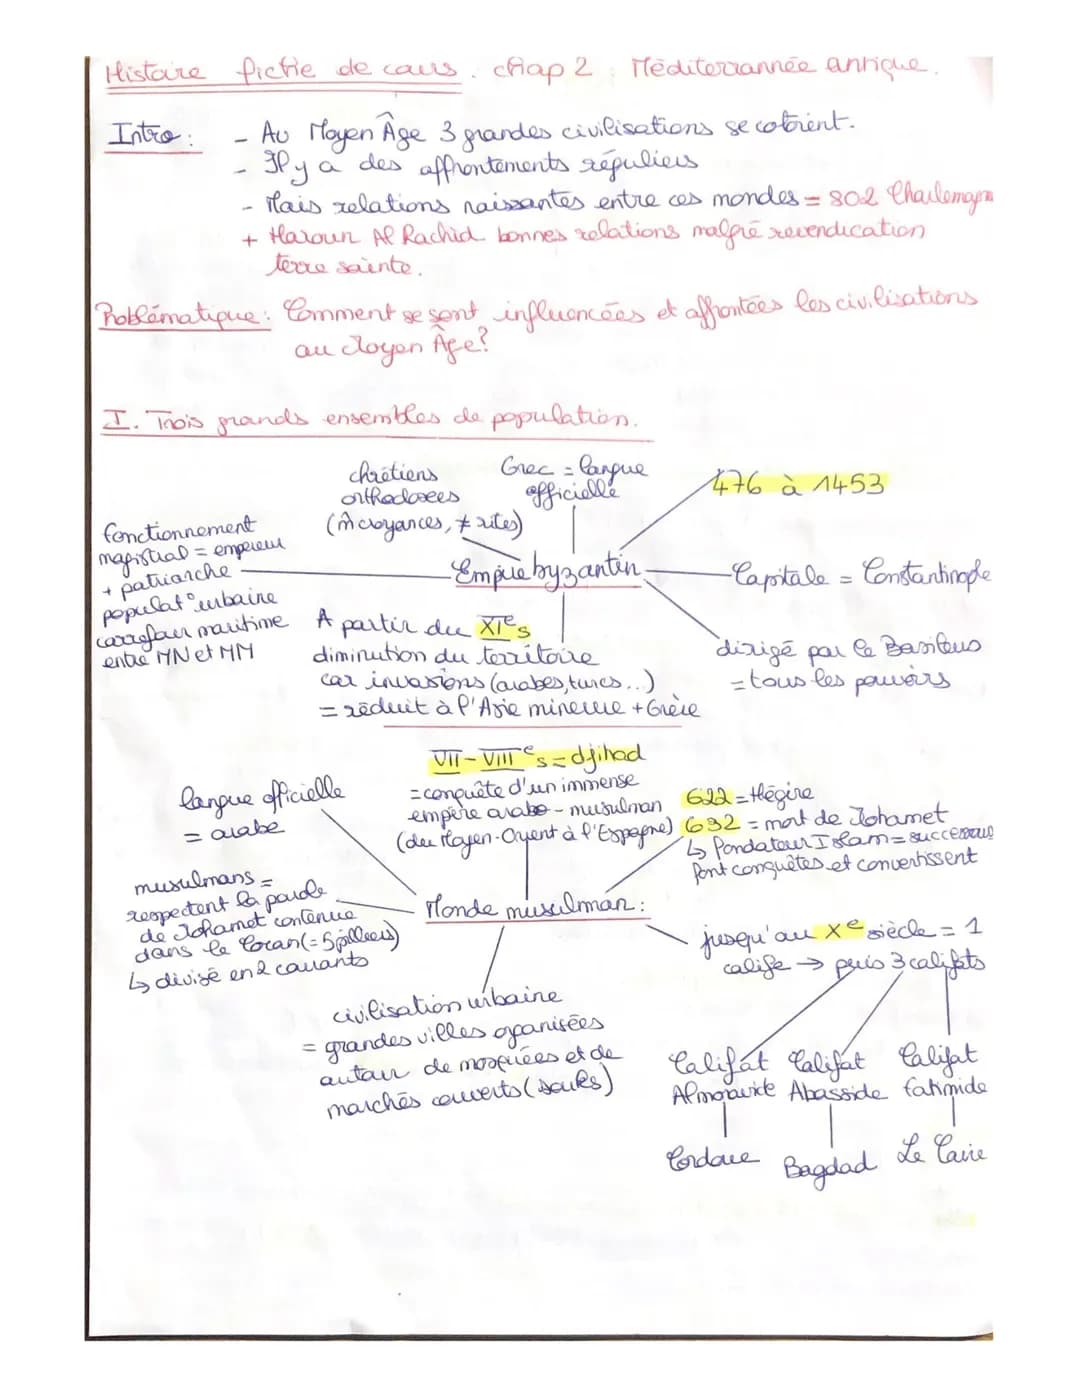 Histoire fiche de cours. chap 2 Méditerrannée antique.
Intro : - Au Moyen Âge 3 grandes civilisations se cotoient.
- Il y a des affrontements réguliers
- Mais relations naissantes entre ces mondes = 802 Charlemagn
+ Haroun Al Rachid bonnes relations malgré revendication
terre sainte.
Problématique : Comment se sont influencées et affrontées les civilisations
au Moyen Âge?
I. Trois grands ensembles de population.
chrétiens
orthodoxes
(m̂ croyances, ≠ rites)
Grec = langue
officielle
476 à 1453
fonctionnement
magistral = empereur
+ patriarche
populat° urbaine
carrefour maritime
entre MN et MM
Empire byzantin
Capitale = Constantinople
A partir du XIe s
diminution du territoire
car invasions (arabes, turcs...)
= réduit à l'Asie mineure + Grèce
dirigé par le Basileus
= tous les pouvoirs
VII - VIIIe s = djihad
= conquête d'un immense
empire arabo - musulman
(du Moyen-Orient à l'Espagne)
langue officielle
= arabe
622 = Hégire
632 = mort de Mohamet
↳ fondateur Islam = successeurs
font conquêtes et convertissent
musulmans =
respectent la parole
de Mohamet contenue
dans le Coran (= 5 pilliers)
↳ divisé en 2 courants
Monde musulman :
jusqu'au Xe siècle = 1
calife → puis 3 califats
civilisation urbaine
= grandes villes organisées
autour de mosquées et de
marchés couverts (souks)
Califat Califat Califat
Almoravide Abasside fatimide
Cordoue Bagdad Le Caire